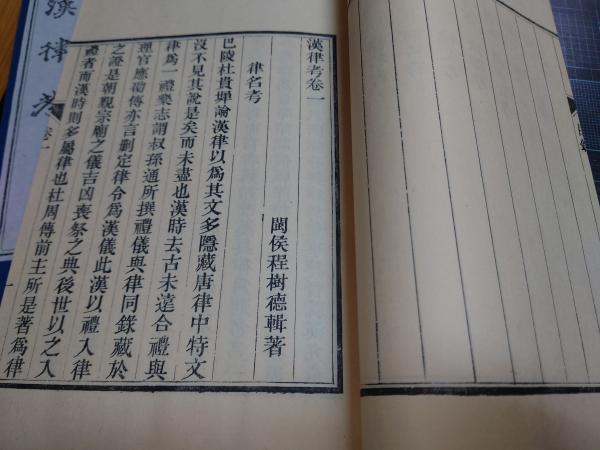 漢律考卷一
閩侯程樹德輯著
律名考
巴陵杜貴墀論漢律以為其文多隱藏唐律中特文
沒不見其說是矣而未盡也漢時去古未遠合禮與
律為一禮樂志謂叔孫通所撰禮儀與律同錄藏於
理官應劭傳亦言刪定律令為漢儀此漢以禮入律
之證是朝覲宗廟之儀吉凶喪祭之典後世以之入
禮者而漢時則多屬律也杜周傳前主所是著為律
一
漢律考
卷一